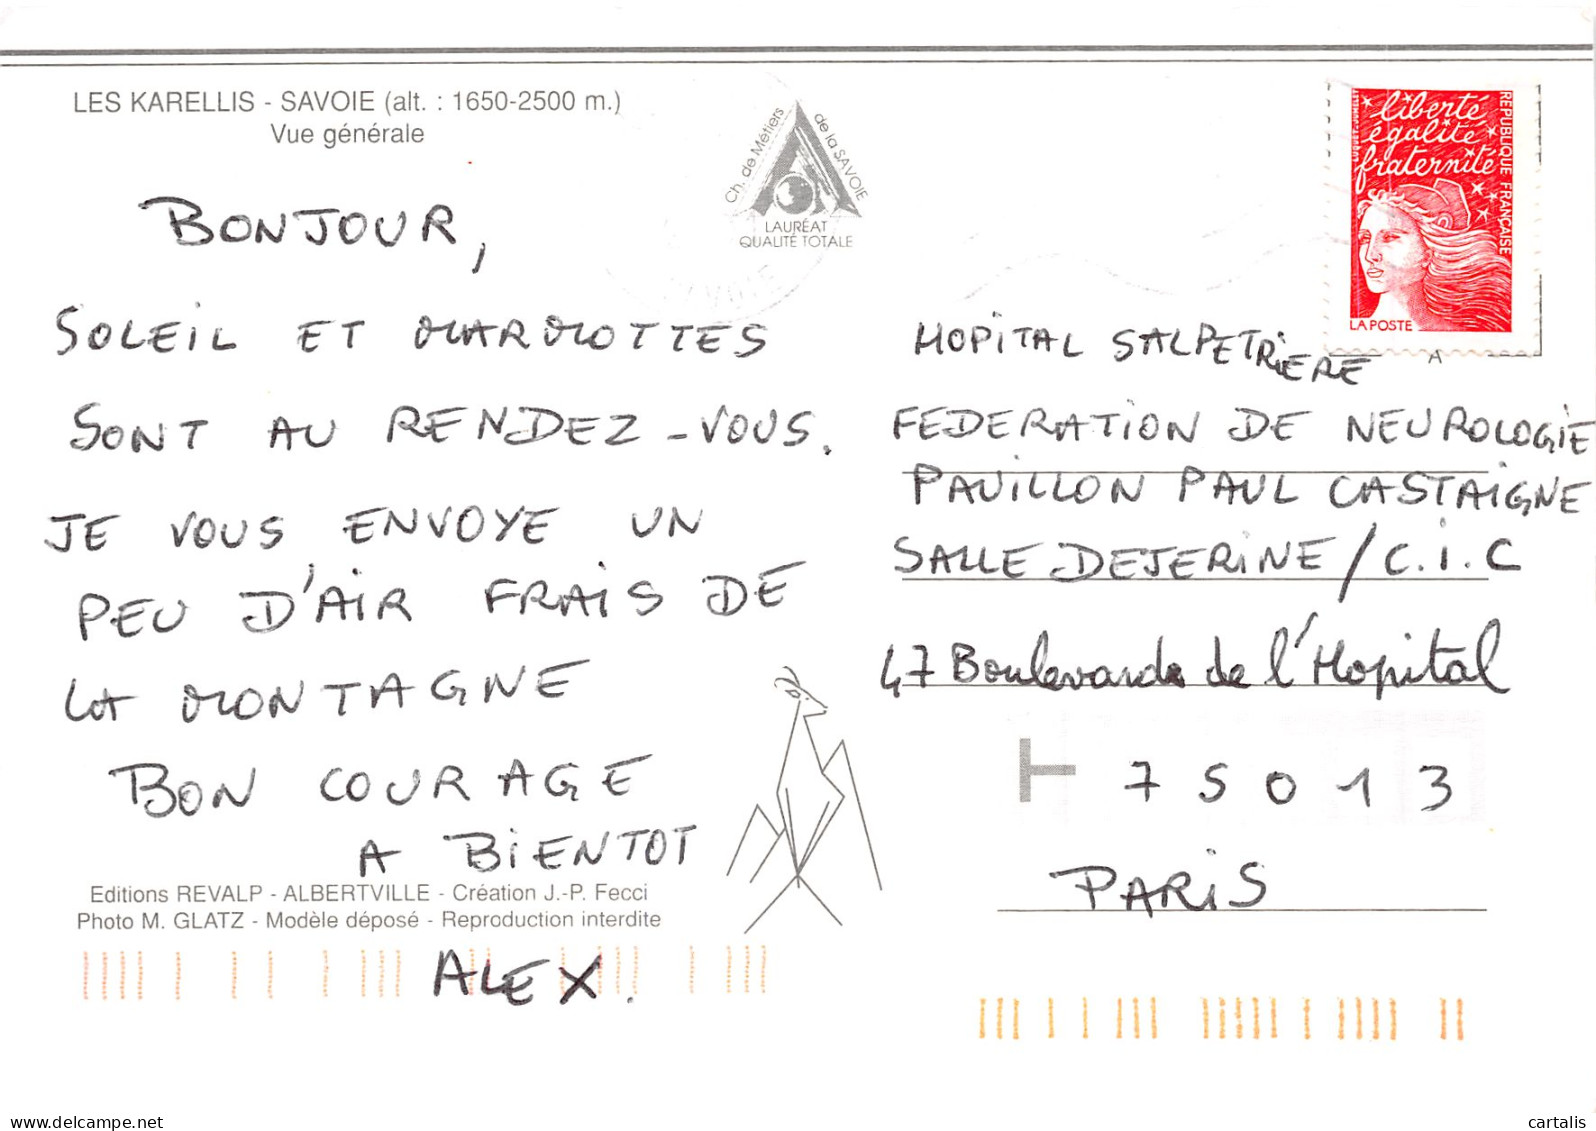 LES KARELLIS - SAVOIE (alt. : 1650-2500 m.)
Vue générale
Ch. de Métiers de la SAVOIE
LAURÉAT
QUALITÉ TOTALE
liberté
égalité
fraternité
REPUBLIQUE FRANÇAISE
LA POSTE
BONJOUR,
SOLEIL ET MARMOTTES
SONT AU RENDEZ-VOUS.
JE VOUS ENVOYE UN
PEU D'AIR FRAIS DE
LA MONTAGNE
BON COURAGE
A BIENTOT
ALEX.
HOPITAL SALPETRIERE
FEDERATION DE NEUROLOGIE
PAVILLON PAUL CASTAIGNE
SALLE DEJERINE / C.I.C
47 Boulevard de l'Hopital
75013
PARIS
Editions REVALP - ALBERTVILLE - Création J.-P. Fecci
Photo M. GLATZ - Modèle déposé - Reproduction interdite
delcampe.net
cartalis